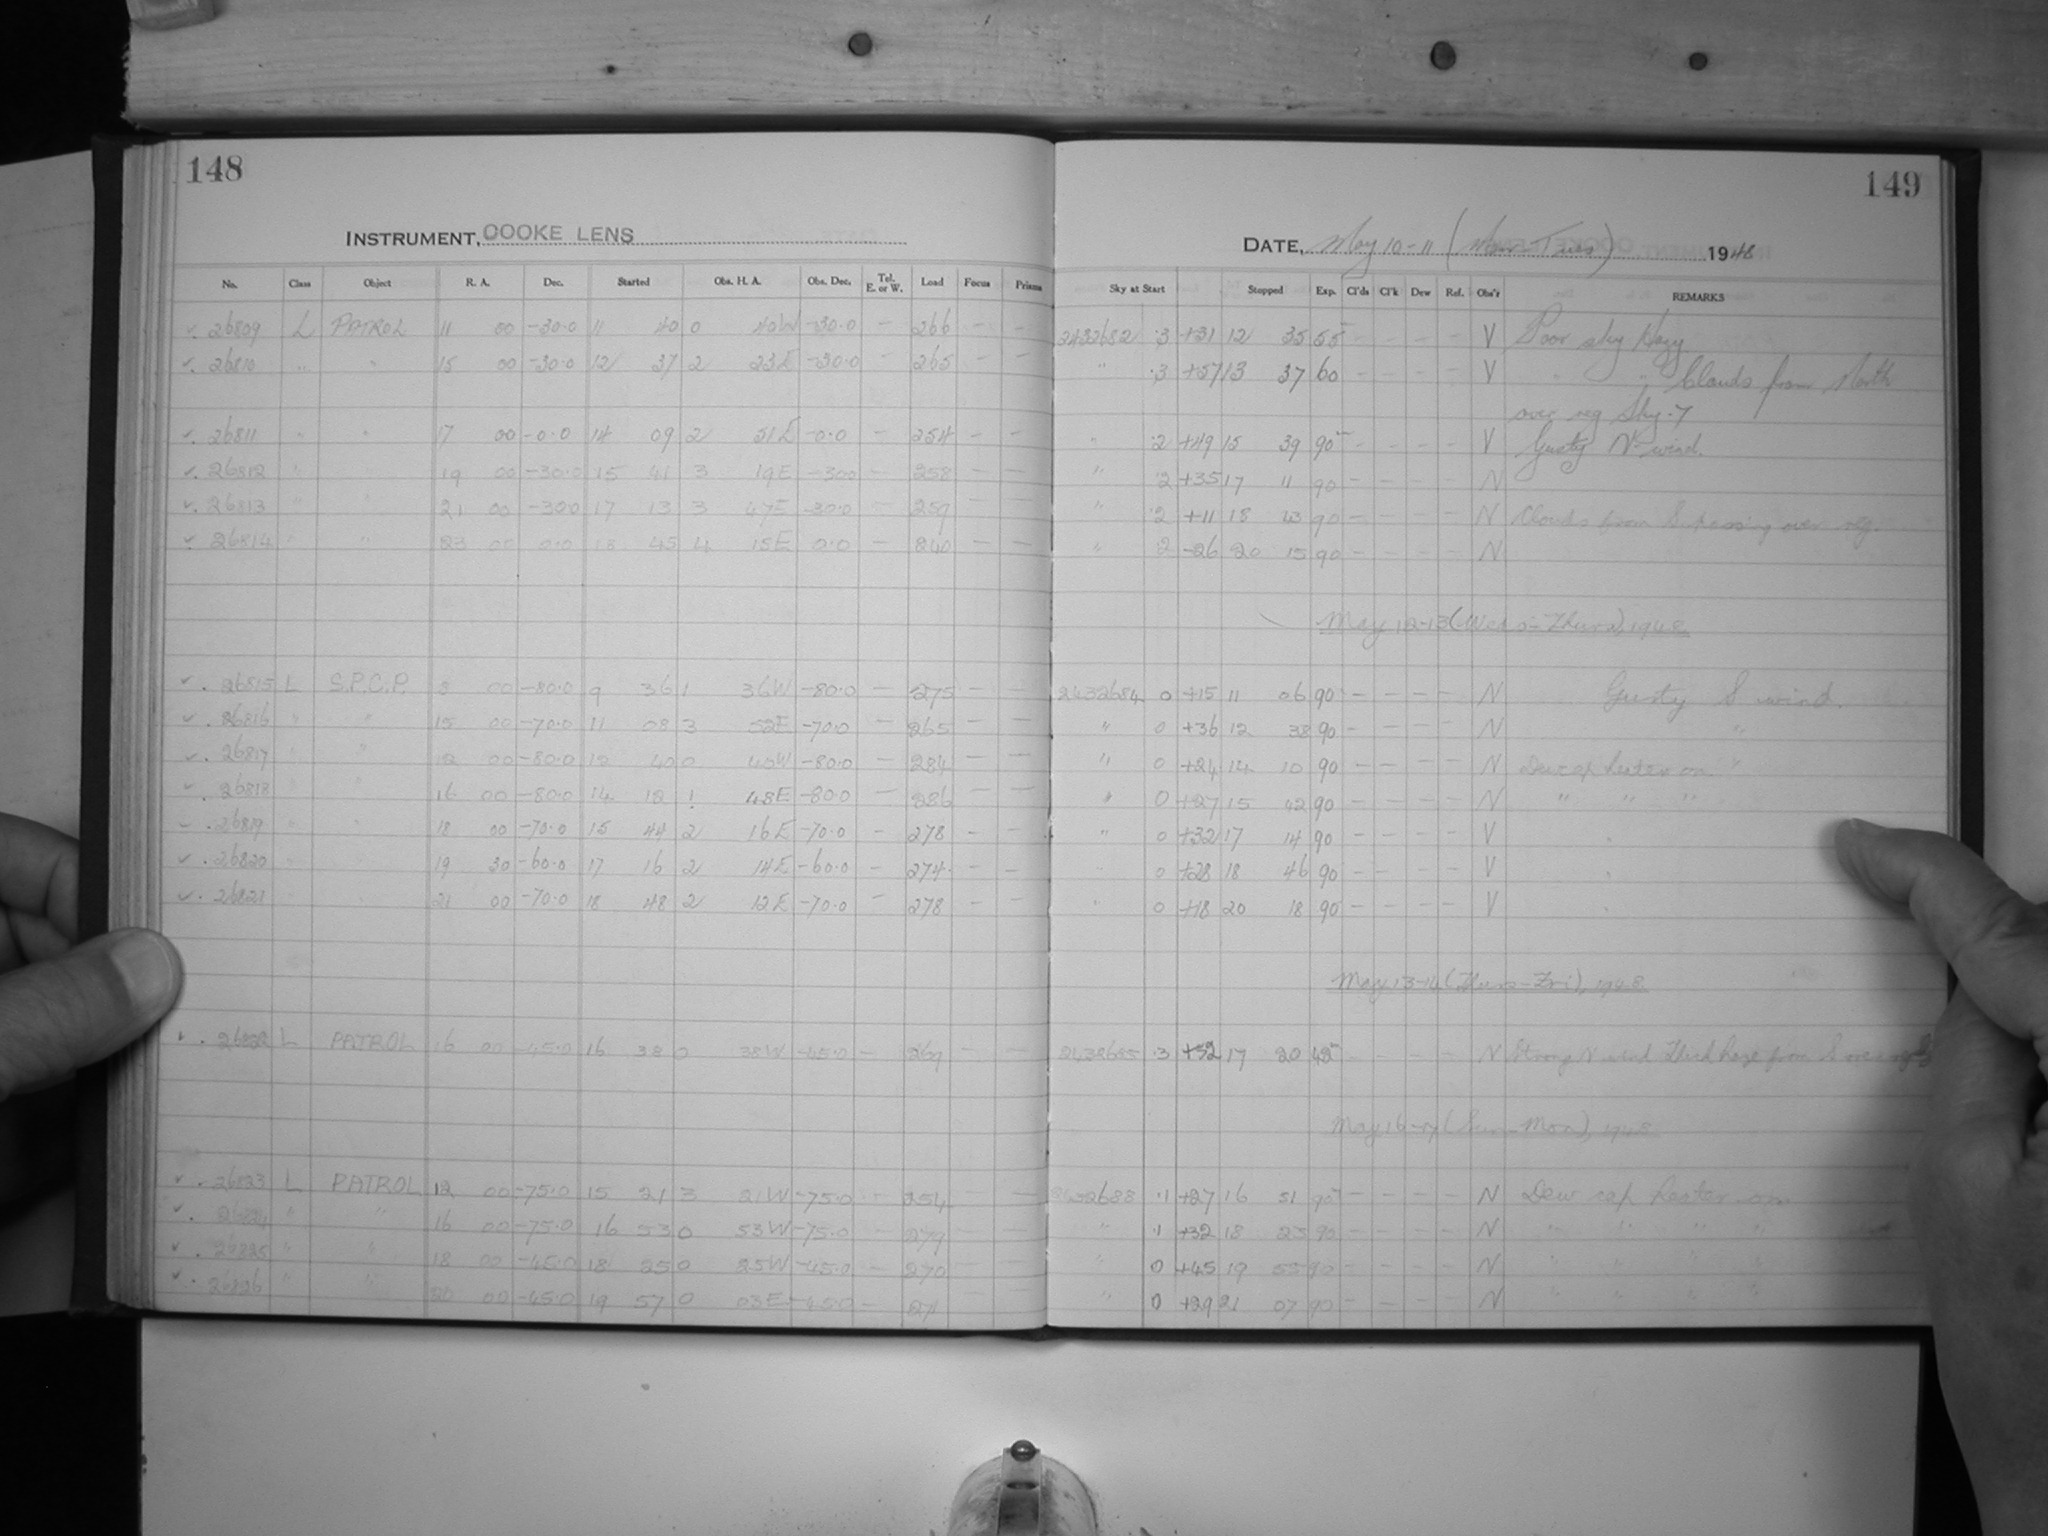 148
149
INSTRUMENT, COOKE LENS
DATE, May 10-11 (Mon-Tues) 1948
No. Class Object R. A. Dec. Started Obs. H. A. Obs. Dec. Tel. E. or W. Load Focus Prisms Sky at Start Stopped Exp. Cl'ds Cl'k Dew Ref. Obs'r REMARKS
✓. 26809 L PATROL 11 00 -30.0 11 40 0 40W -30.0 - 266 - - 2432682 .3 +31 12 35 55 - - - - V Poor sky Hazy
✓. 26810 " " 15 00 -30.0 12 37 2 23E -30.0 - 265 - - " .3 +57 13 37 60 - - - - V " " Clouds from North
over reg Sky .7
✓. 26811 " " 17 00 -0.0 14 09 2 51E -0.0 - 254 - - " .2 +49 15 39 90 - - - - V Gusty N wind.
✓. 26812 " " 19 00 -30.0 15 41 3 19E -30.0 - 258 - - " .2 +35 17 11 90 - - - - N
✓. 26813 " " 21 00 -30.0 17 13 3 47E -30.0 - 259 - - " .2 +11 18 43 90 - - - - N Clouds from S passing over reg.
✓. 26814 " " 23 00 0.0 18 45 4 15E 0.0 - 240 - - " .2 -26 20 15 90 - - - - N
May 12-13 (Weds-Thurs), 1948
✓. 26815 L S.P.C.P. 00 -80.0 9 36 1 36W -80.0 - 275 - - 2432684 0 +15 11 06 90 - - - - N Gusty S wind.
✓. 26816 " " 15 00 -70.0 11 08 3 52E -70.0 - 265 - - " 0 +36 12 38 90 - - - - N "
✓. 26817 " " 12 00 -80.0 12 40 0 45W -80.0 - 284 - - " 0 +24 14 10 90 - - - - N Dewcap heater on "
✓. 26818 " " 16 00 -80.0 14 12 1 48E -80.0 - 286 - - " 0 +27 15 42 90 - - - - N " " "
✓. 26819 " " 18 00 -70.0 15 44 2 16E -70.0 - 278 - - " 0 +32 17 14 90 - - - - V "
✓. 26820 " " 19 30 -60.0 17 16 2 14E -60.0 - 274 - - " 0 +28 18 46 90 - - - - V "
✓. 26821 " " 21 00 -70.0 18 48 2 12E -70.0 - 278 - - " 0 +18 20 18 90 - - - - V "
May 13-14 (Thurs-Fri), 1948
✓. 26822 L PATROL 16 00 -45.0 16 38 0 38W -45.0 - 269 - - 2432685 .3 +52 17 20 42 - - - - N Strong N wind Thick haze from S over
May 16-17 (Sun-Mon), 1948
✓. 26823 L PATROL 12 00 -75.0 15 21 3 21W -75.0 - 254 - - 2432688 .1 +27 16 51 90 - - - - N Dew cap heater on
✓. 26824 " " 16 00 -75.0 16 53 0 53W -75.0 - 279 - - " .1 +32 18 23 90 - - - - N " " " "
✓. 26825 " " 18 00 -45.0 18 25 0 25W -45.0 - 270 - - " 0 +45 19 55 90 - - - - N " " " "
✓. 26826 " " 20 00 -45.0 19 57 0 03E -45.0 - 271 - - " 0 +29 21 07 90 - - - - N " " " "